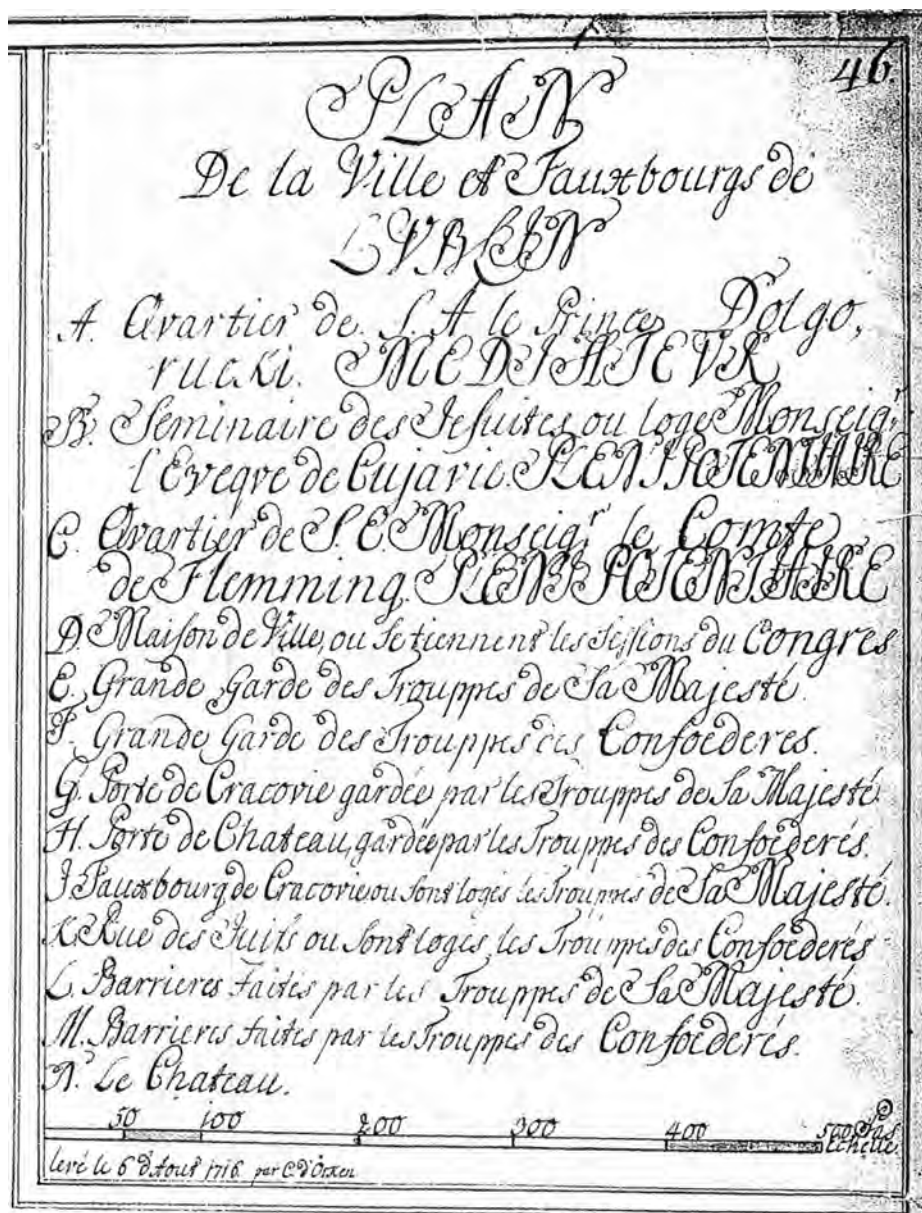 46
PLAN
De la Ville et Fauxbourgs de
LVBLIN
A. Qvartier de S. A le Prince Dolgo,
rucki. MEDIATEVR
B. Seminaire des Jesuites ou loge Monseigr
l'Eveqve de Cujavie. PLENIPOTENTIAIRE
C. Qvartier de S. E. Monseigr le Comte
de Flemming. PLENIPOTENTIAIRE
D. Maison de Ville, ou se tiennent les Sessions du Congres
E. Grande Garde des Trouppes de Sa Majesté.
F. Grande Garde des Trouppes des Confoederes.
G. Porte de Cracovie gardée par les Trouppes de Sa Majesté.
H. Porte de Chateau, gardée par les Trouppes des Confoederés.
J. Fauxbourg de Cracovie ou sont logés les Trouppes de Sa Majesté.
K. Rue des Juifs ou sont logés les Trouppes des Confoederés
L. Barrieres faites par les Trouppes de Sa Majesté.
M. Barrieres faites par les Trouppes des Confoederés.
N. Le Chateau.
50 100 200 300 400 500 Pas
echelle.
levé le 6 d'Aout 1716 par C. d'Örken